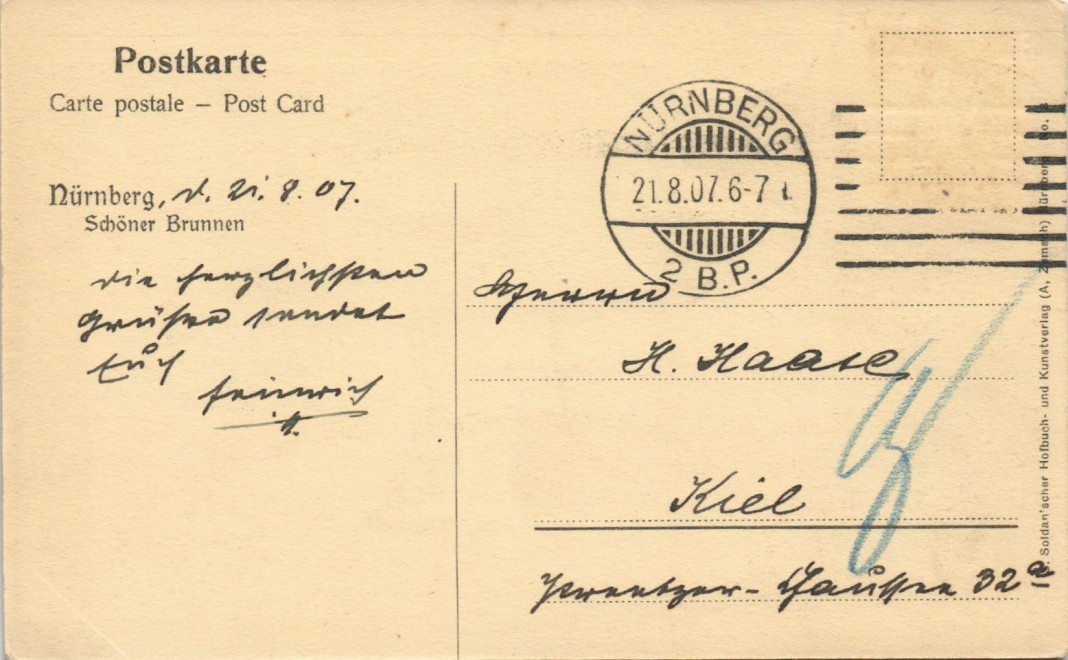 Postkarte
Carte postale – Post Card
Nürnberg, d. 21. 8. 07.
Schöner Brunnen
die herzlichsten
Grüße sendet
Euch
Heinrich
NÜRNBERG
21.8.07. 6-7
2 B.P.
Herrn
H. Haase
Kiel
Preetzer-Chaussee 32a
Soldan'scher Hofbuch- und Kunstverlag (A. Zemsch) Nürnberg No.